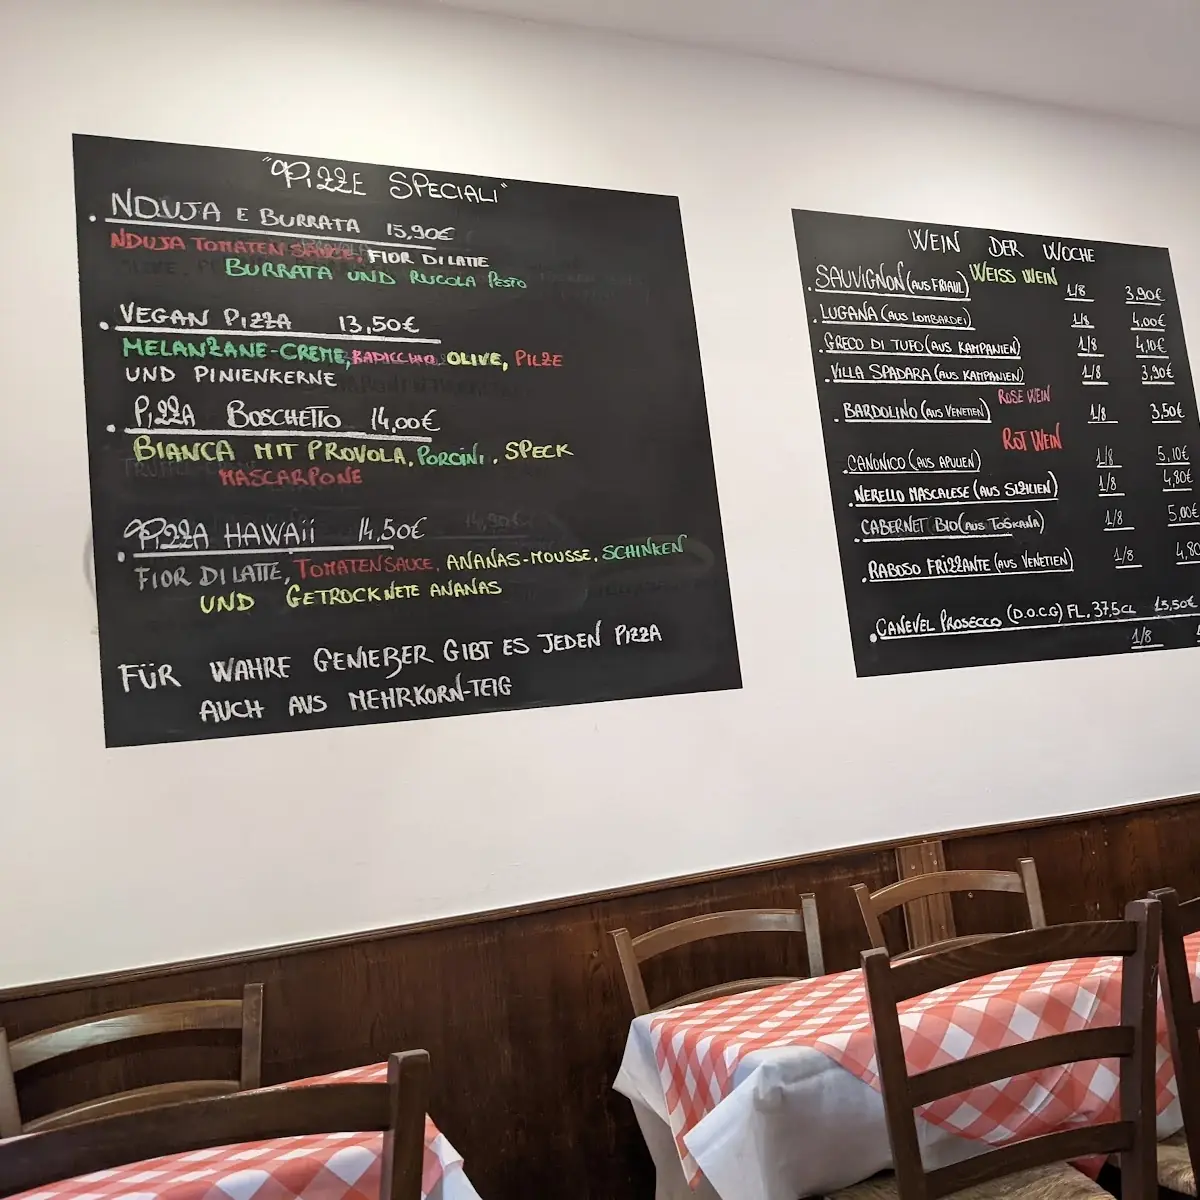 "PIZZE SPECIALI"
. NDUJA E BURRATA 15,90€
NDUJA TOMATEN SAUCE, FIOR DI LATTE
BURRATA UND RUCOLA PESTO
. VEGAN PIZZA 13,50€
MELANZANE-CREME, RADICCHIO, OLIVE, PILZE
UND PINIENKERNE
. PIZZA BOSCHETTO 14,00€
BIANCA MIT PROVOLA, PORCINI, SPECK
MASCARPONE
. PIZZA HAWAii 14,50€
FIOR DI LATTE, TOMATENSAUCE, ANANAS-MOUSSE, SCHINKEN
UND GETROCKNETE ANANAS
FÜR WAHRE GENIEßER GIBT ES JEDEN PIZZA
AUCH AUS MEHRKORN-TEIG
WEIN DER WOCHE
WEISS WEIN
. SAUVIGNON (AUS FRIAUL) 1/8 3,90€
. LUGANA (AUS LOMBARDEI) 1/8 4,00€
. GRECO DI TUFO (AUS KAMPANIEN) 1/8 4,10€
. VILLA SPADARA (AUS KAMPANIEN) 1/8 3,90€
ROSE WEIN
. BARDOLINO (AUS VENETIEN) 1/8 3,50€
ROT WEIN
. CANONICO (AUS APULIEN) 1/8 5,10€
. NERELLO MASCALESE (AUS SIZILIEN) 1/8 4,80€
. CABERNET BIO (AUS TOSKANA) 1/8 5,00€
. RABOSO FRIZZANTE (AUS VENETIEN) 1/8 4,80
. CANEVEL PROSECCO (D.O.C.G) FL. 37,5CL 15,50€
1/8